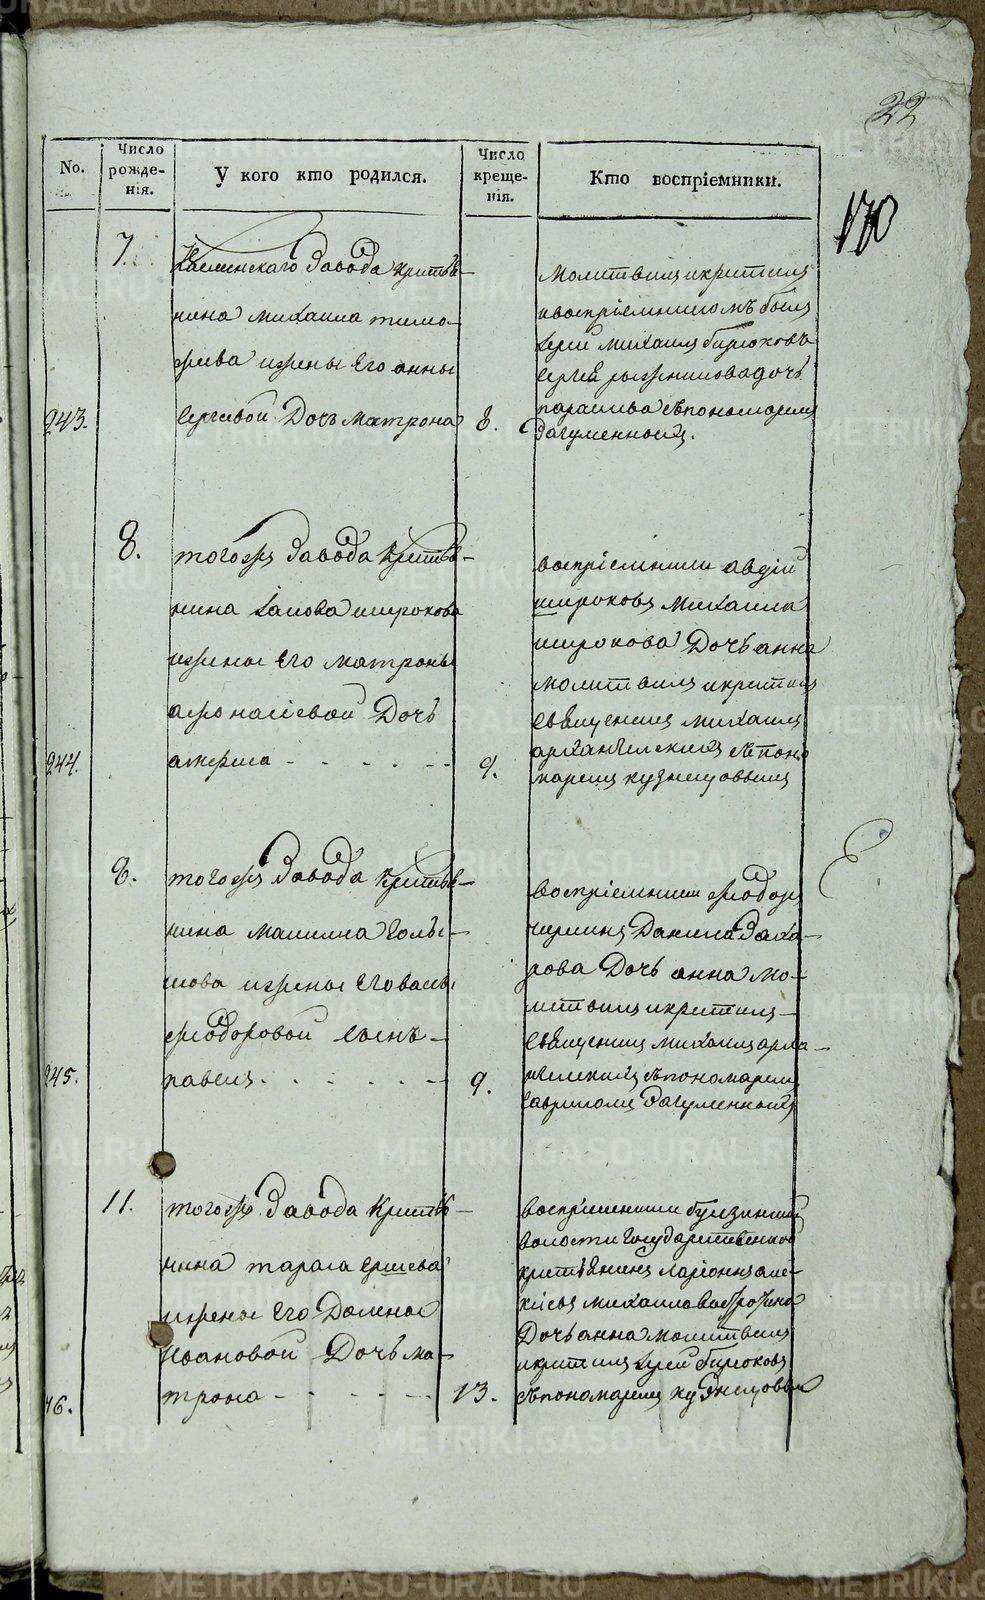 22
170
No.
Число рожде- нія.
У кого кто родился.
Число креще- нія.
Кто воспріемники.
243.
7.
Каслинскаго Завода кртья-
нина михаила тимо-
фева ижены его анны
Сергевой Дочь матрона
8.
молитвилъ икрт илъ
ивоспріемникомъ былъ
Іерей михаилъ бирюковъ
Сергея дочь
параскева съпономаремъ
Загуменныхъ.
244.
8.
тогожъ Завода кртья-
нина Іакова широкова
ижены его матроны
афонасіевой Дочь
анфиса
9.
воспріемники авдій
широковъ михаила
широкова Дочь анна
молитвилъ икртилъ
священникъ михаилъ
архангелскихъ съпоно
маремъ кузнецовымъ
245.
8.
тогожъ Завода кртья-
нина максима голы-
шова ижены его васы
феодоровой сынъ
павелъ
9.
воспріемники феодоръ
Данила Заха-
рова Дочь анна мо-
литвилъ икртилъ
священникъ михаилъ арха-
нгелскихъ съпономаремъ
гавриломъ Загуменныхъ
46.
11.
тогожъ Завода кртья-
нина тараса ершева
ижены его Домны
Ивановой Дочь ма-
трона
13.
воспріемники булзинской
волости государственной
кртьянинъ ларіонъ але-
ксіевъ михаила
Дочь анна молитвилъ
икртилъ Іерей бирюковъ
съпономаремъ кузнецовым
METRIKI.GASO-URAL.RU